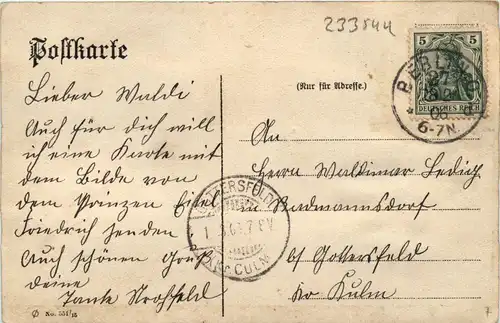 233544
Postkarte
(Nur für Adresse.)
5 5
DEUTSCHES REICH
BERLIN
6-7N.
Lieber Waldi
Auch für dich will
ich eine Karte mit
dem Bilde von
dem Prinzen Eitel
Friedrich senden
Auch schönen Gruß
deine
Tante
An
Herrn Waldimar Ledich
in Radmannsdorf
b/ Gottersfeld
Kr Kulm
GOTTERSFELD
CULM
No. 551/15
7.